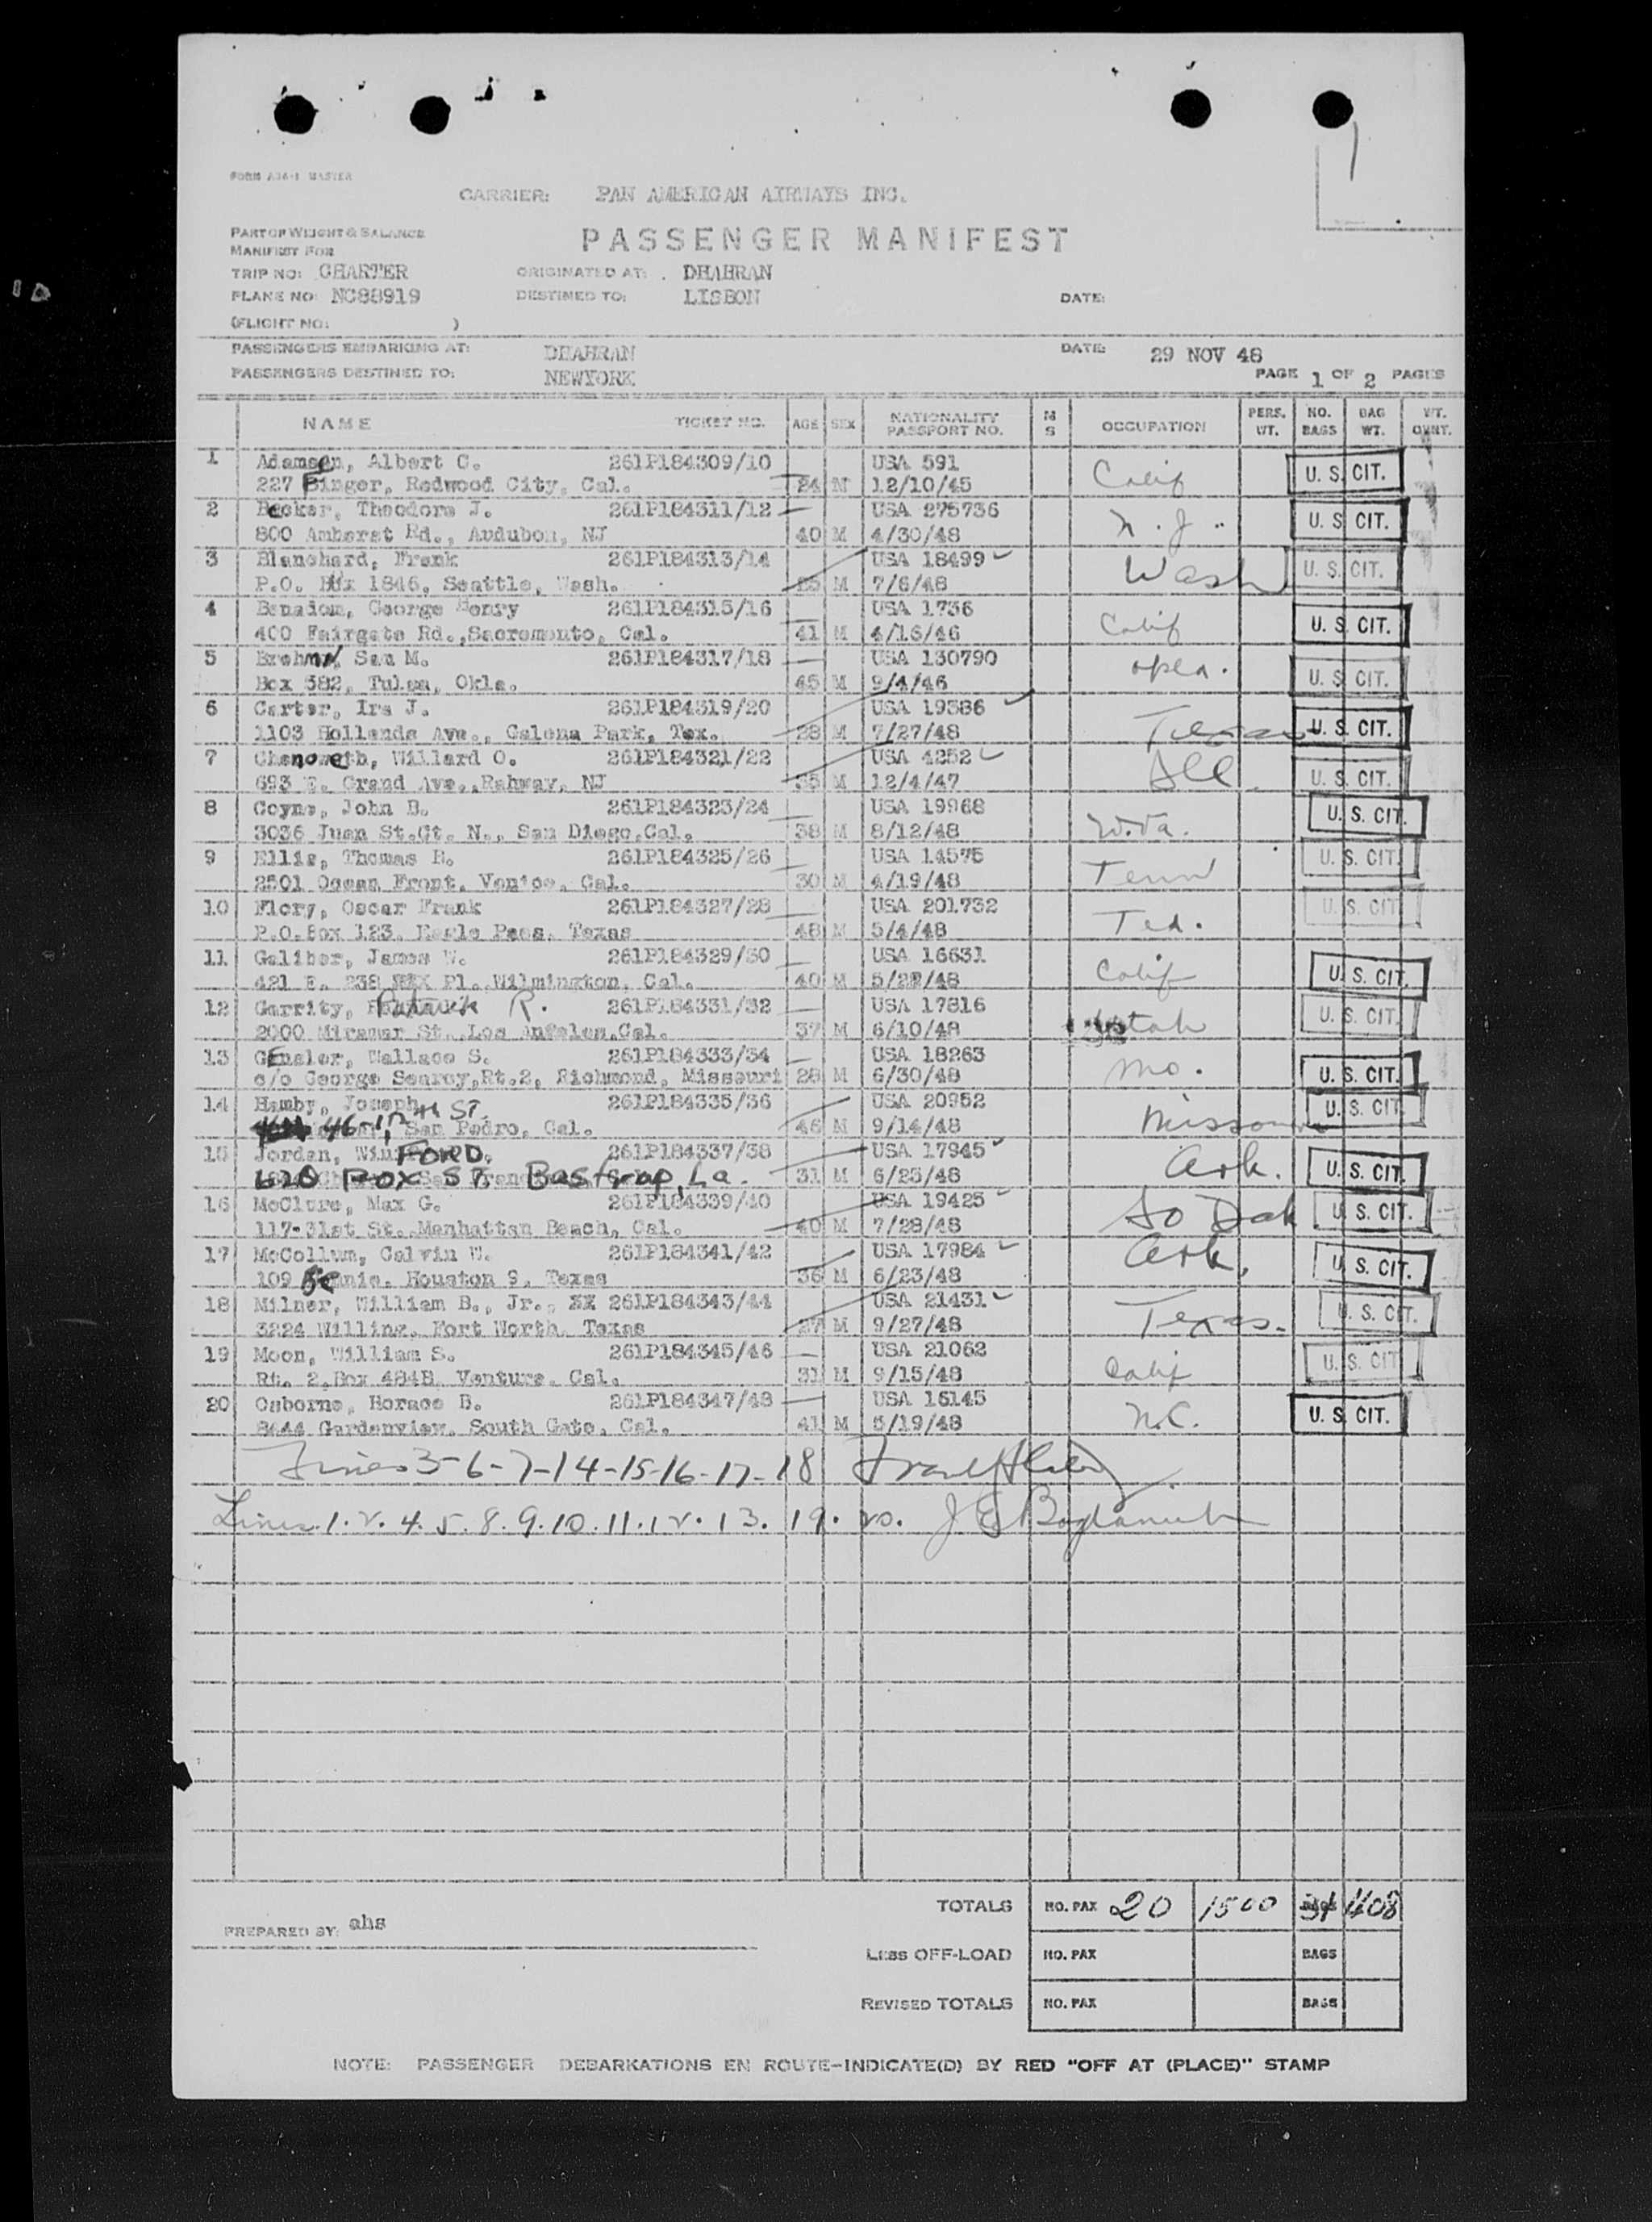 FORM A36-1 MASTER
CARRIER: PAN AMERICAN AIRWAYS INC.
PART OF WEIGHT & BALANCE
MANIFEST FOR
PASSENGER MANIFEST
TRIP NO: CHARTER ORIGINATED AT: DHAHRAN
PLANE NO: NC88919 DESTINED TO: LISBON DATE:
(FLIGHT NO: )
PASSENGERS EMBARKING AT: DHAHRAN DATE: 29 NOV 48
PASSENGERS DESTINED TO: NEWYORK PAGE 1 OF 2 PAGES
NAME TICKET NO. AGE SEX NATIONALITY PASSPORT NO. M S OCCUPATION PERS. WT. NO. BAGS BAG WT. WT. CENT.
1 Adamsen, Albert C. 261P184309/10 USA 591 Calif U. S. CIT.
227 Finger, Redwood City, Cal. 24 M 12/10/45
2 Becker, Theodore J. 261P184311/12 USA 275736 N. J. U. S. CIT.
800 Amherst Rd., Audubon, NJ 40 M 4/30/48
3 Blanchard, Frank 261P184313/14 USA 18499 Wash U. S. CIT.
P.O. Box 1846, Seattle, Wash. M 7/6/48
4 George Henry 261P184315/16 USA 1736 Calif U. S. CIT.
400 Fairgate Rd., Sacremonto, Cal. 41 M 4/16/46
5 Sam M. 261P184317/18 USA 130790 U. S. CIT.
Box 382, Tulsa, Okla. 45 M 9/4/46
6 Carter, Ira J. 261P184319/20 USA 19386 Texas U. S. CIT.
1103 Hollands Ave., Galena Park, Tex. 28 M 7/27/48
7 Chenoweth, Willard O. 261P184321/22 USA 4252 Ill. U. S. CIT.
693 E. Grand Ave., Rahway, NJ 35 M 12/4/47
8 Coyne, John B. 261P184323/24 USA 19968 W. Va. U. S. CIT.
3036 Juan St. Ct. N., San Diego, Cal. 38 M 8/12/48
9 Ellis, Thomas B. 261P184325/26 USA 14575 Tenn U. S. CIT.
2501 Ocean Front, Venice, Cal. 30 M 4/19/48
10 Flory, Oscar Frank 261P184327/28 USA 201732 U. S. CIT.
P.O. Box 123, Eagle Pass, Texas 48 M 5/4/48
11 Galiher, James W. 261P184329/30 USA 16631 Calif U. S. CIT.
421 E. 238 Pl., Wilmington, Cal. 40 M 5/27/48
12 Garrity, Patrick R. 261P184331/32 USA 17816 Utah U. S. CIT.
2000 Miramar St., Los Angeles, Cal. 37 M 6/10/48
13 Gensler, Wallace S. 261P184333/34 USA 18263 Mo. U. S. CIT.
c/o George Searcy, Rt. 2, Richmond, Missouri 28 M 6/30/48
14 Hamby, Joseph 261P184335/36 USA 20952 Missouri U. S. CIT.
46-17th ST. San Pedro, Cal. 46 M 9/14/48
15 Jordan, WinFORD 261P184337/38 USA 17945 Ark. U. S. CIT.
620 POX ST. Bastrop, La. 31 M 6/23/48
16 McClure, Max G. 261P184339/40 USA 19425 So Dak U. S. CIT.
117-31st St., Manhattan Beach, Cal. 40 M 7/28/48
17 McCollum, Calvin W. 261P184341/42 USA 17984 Ark. U. S. CIT.
109 Houston 9, Texas 36 M 6/23/48
18 Milner, William B., Jr., XX 261P184343/44 USA 21431 Texas. U. S. CIT.
3224 Willing, Fort Worth, Texas 27 M 9/27/48
19 Moon, William S. 261P184345/46 USA 21062 Calif U. S. CIT.
Rt. 2, Box 484B, Ventura, Cal. 31 M 9/15/48
20 Osborne, Horace B. 261P184347/48 USA 15145 N.C. U. S. CIT.
8444 Gardenview, South Gate, Cal. 41 M 5/19/48
Lines 3-6-7-14-15-16-17-18
Lines 1. 2. 4. 5. 8. 9. 10. 11. 12. 13. 19. 20.
TOTALS NO. PAX 20 1500 31 1408
PREPARED BY: ahs
LESS OFF-LOAD NO. PAX BAGS
REVISED TOTALS NO. PAX BAGS
NOTE: PASSENGER DEBARKATIONS EN ROUTE-INDICATE(D) BY RED "OFF AT (PLACE)" STAMP